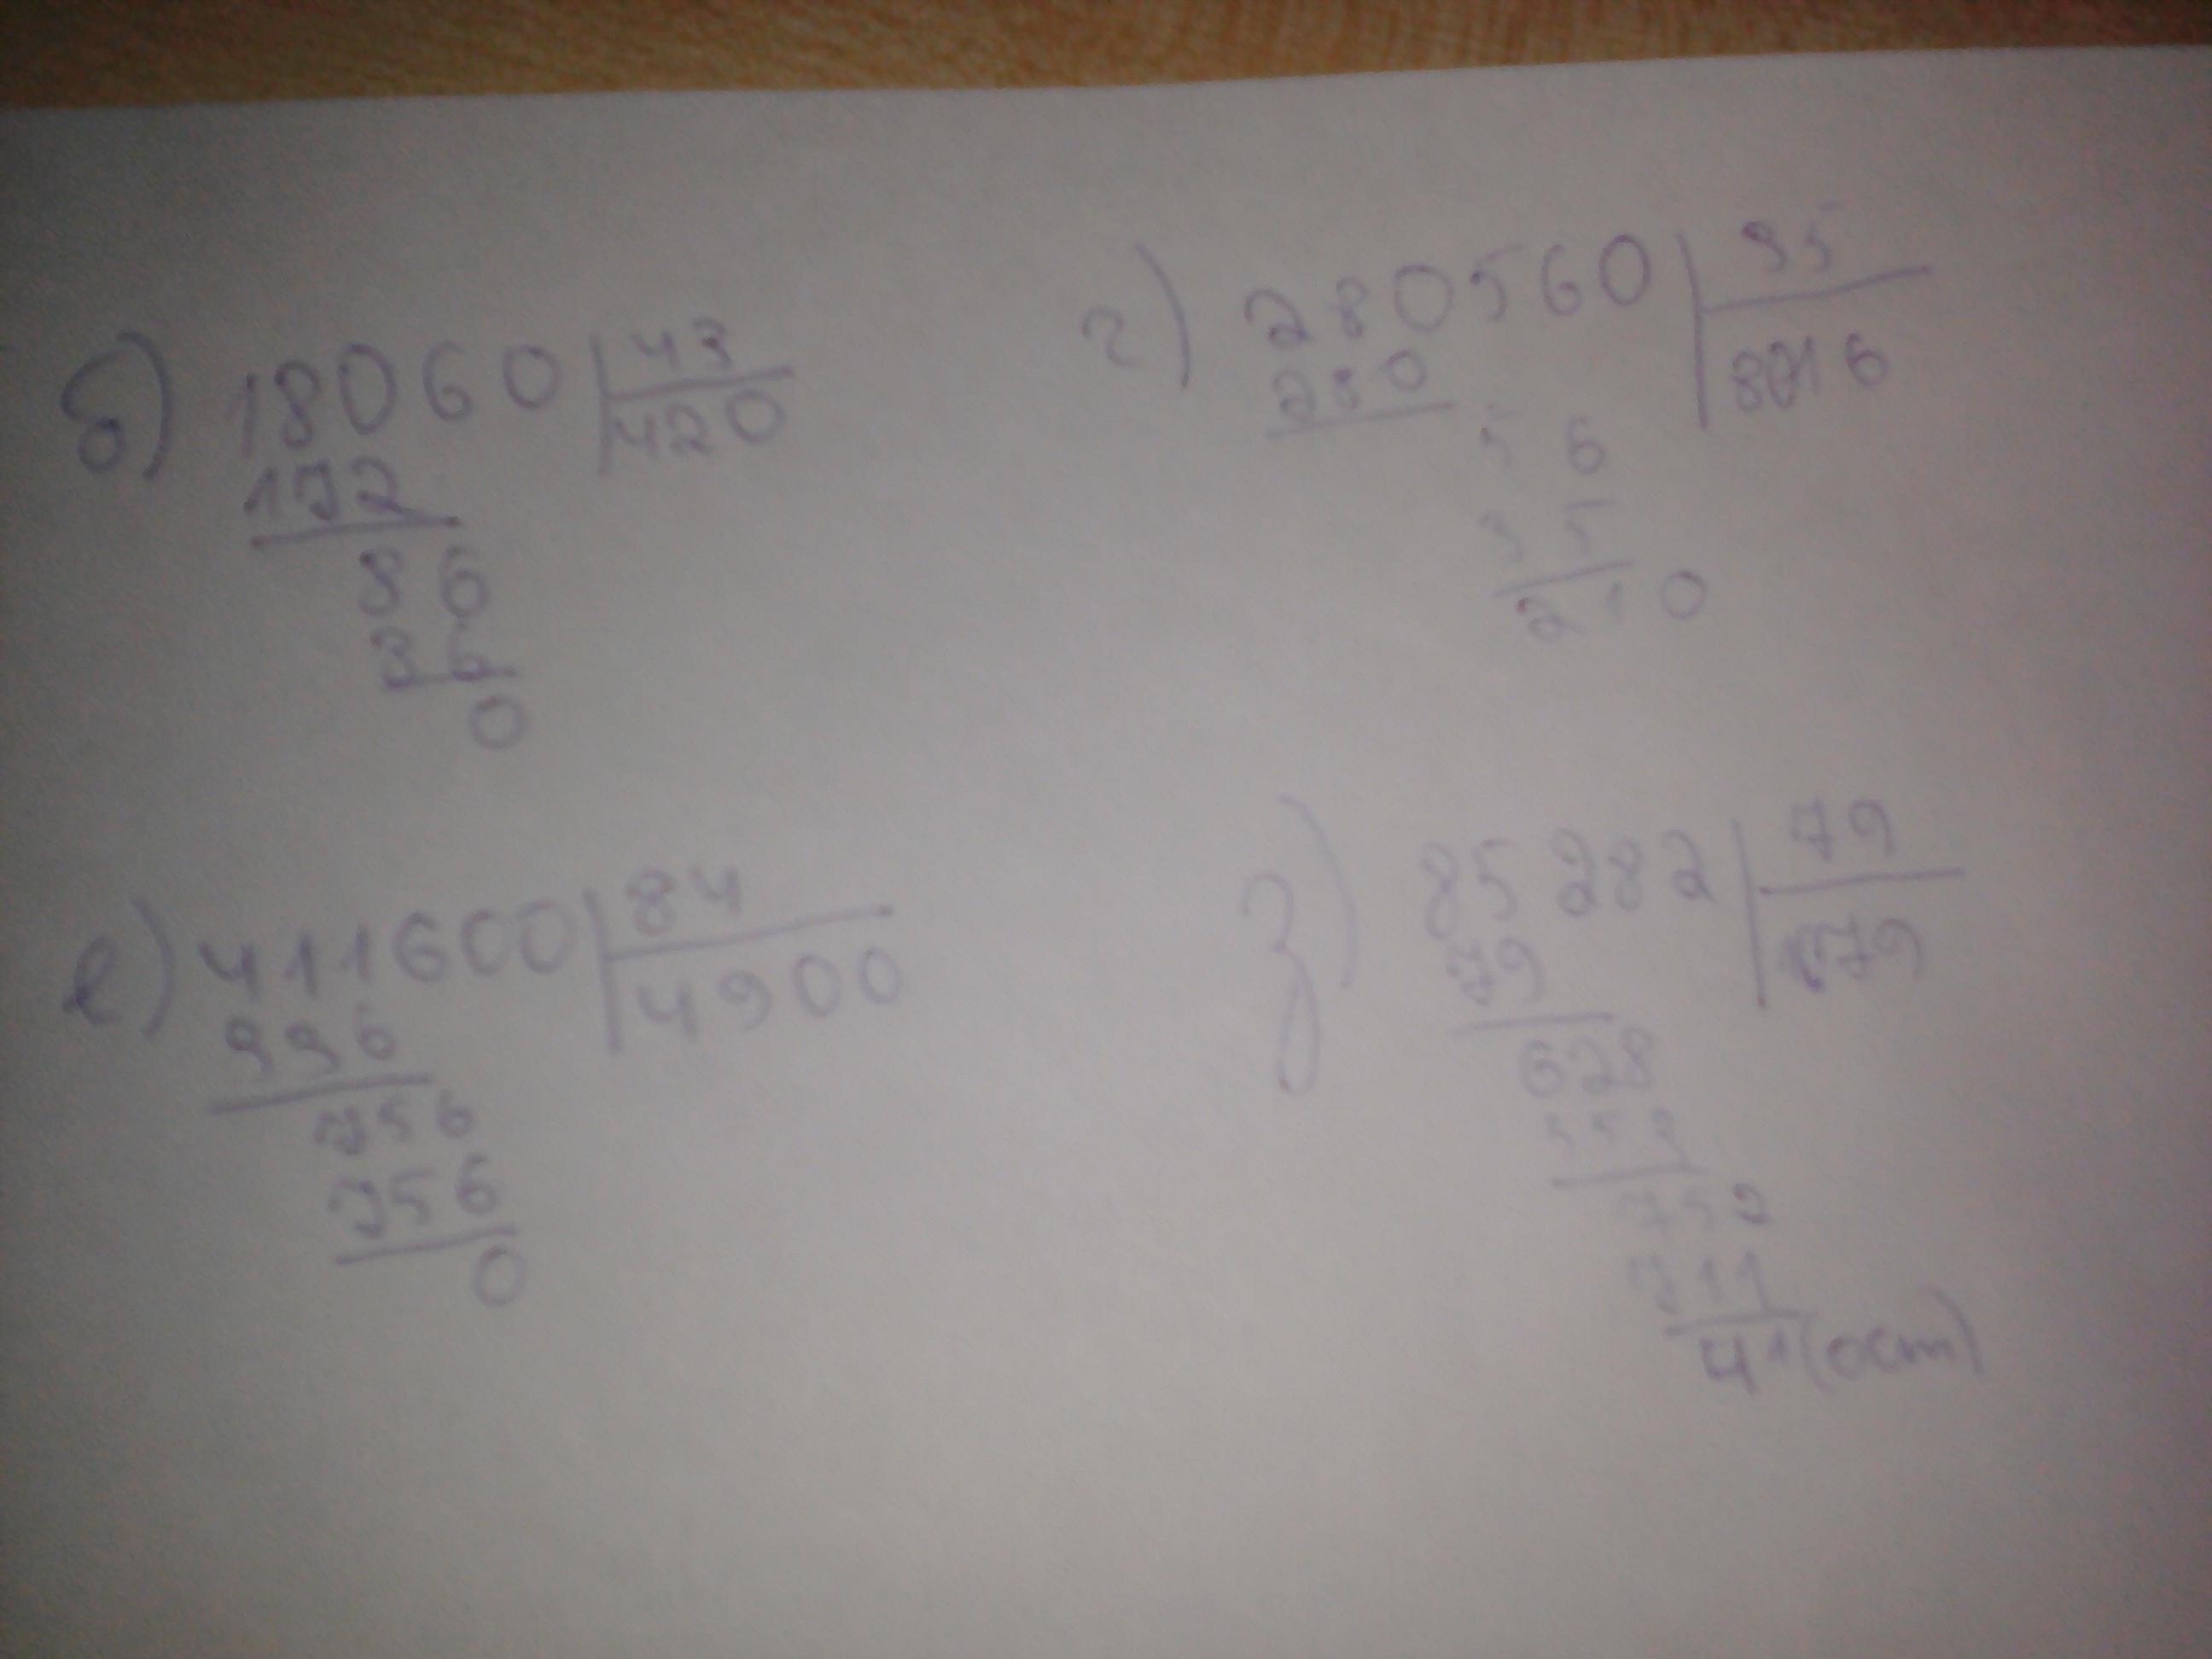 б) 18060 | 43
172 | 420
86
86
0
г) 280560 | 35
280 | 8016
56
35
210
е) 411600 | 84
336 | 4900
756
756
0
з) 85282 | 79
79 | 1079
628
553
752
711
41 (ост)